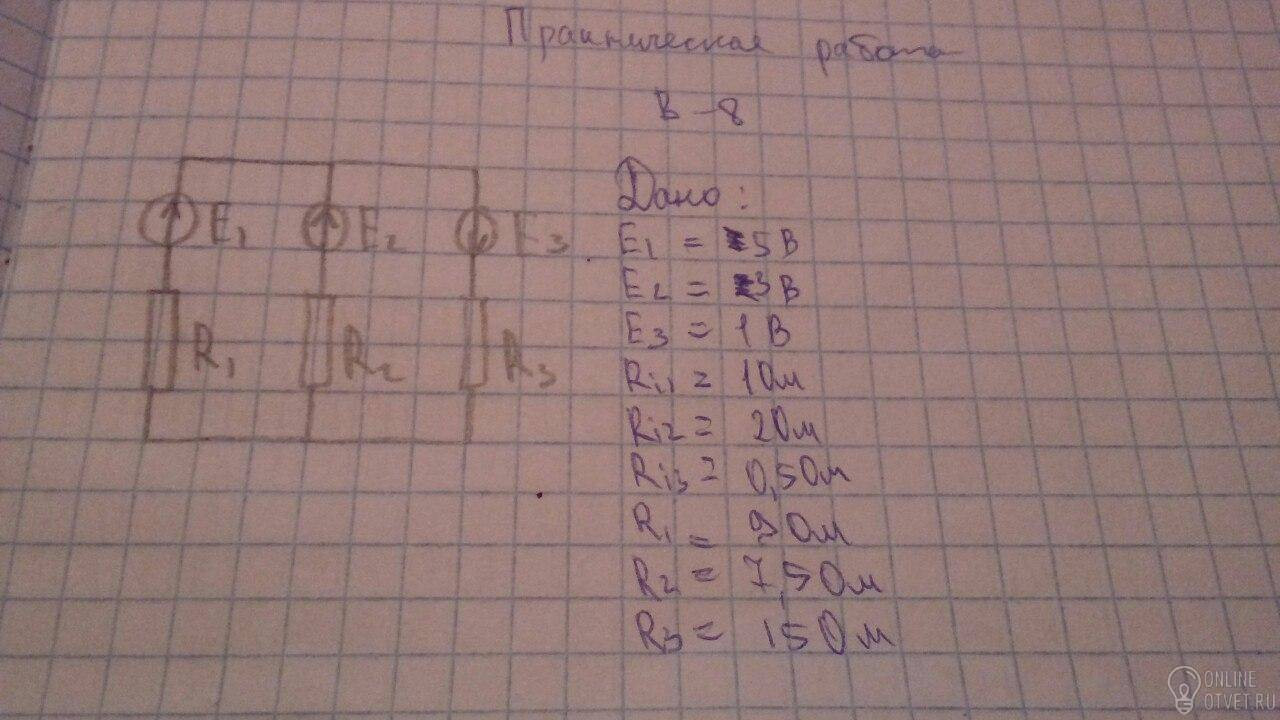 Практическая работа
В-8
E1 E2 E3
R1 R2 R3
Дано:
E1 = 5 В
E2 = 3 В
E3 = 1 В
Ri1 = 1 Ом
Ri2 = 2 Ом
Ri3 = 0,5 Ом
R1 = 9 Ом
R2 = 7,5 Ом
R3 = 15 Ом
ONLINE
OTVET.RU